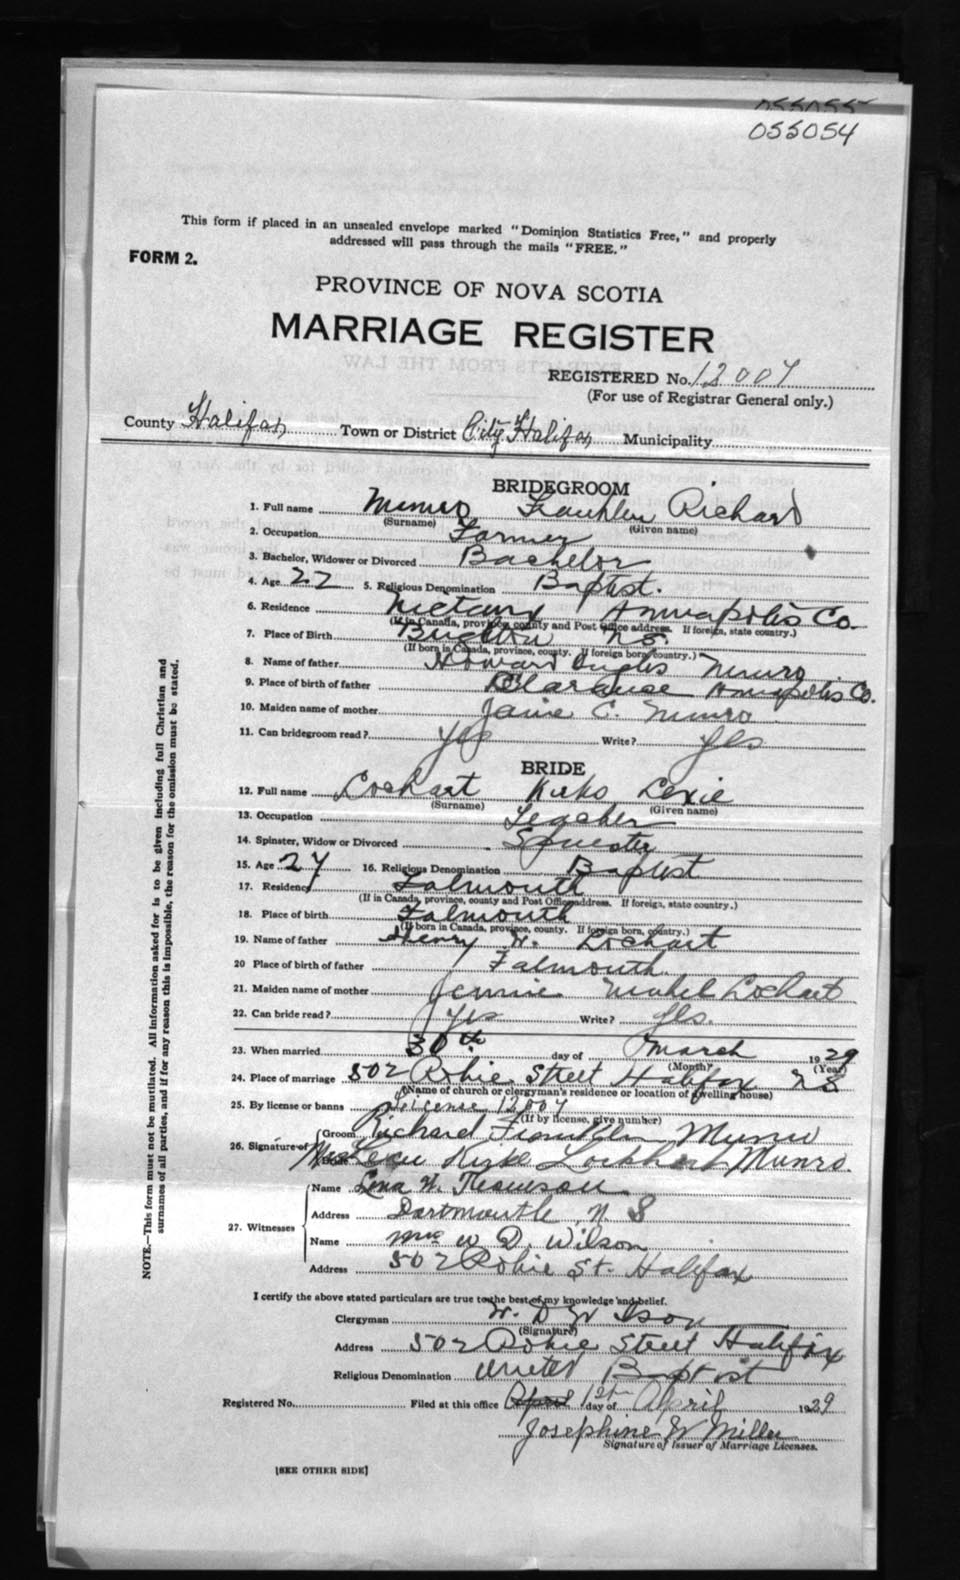 055055
055054
This form if placed in an unsealed envelope marked "Dominion Statistics Free," and properly
addressed will pass through the mails "FREE."
FORM 2.
PROVINCE OF NOVA SCOTIA
MARRIAGE REGISTER
REGISTERED No. 12007
(For use of Registrar General only.)
County Halifax Town or District City Halifax Municipality
BRIDEGROOM
1. Full name Munro Franklin Richard
(Surname) (Given name)
2. Occupation Farmer
3. Bachelor, Widower or Divorced Bachelor
4. Age 27 5. Religious Denomination Baptist.
6. Residence Nictaux Annapolis Co.
(If in Canada, province, county and Post Office address. If foreign, state country.)
7. Place of Birth N.S.
(If born in Canada, province, county. If foreign born, country.)
8. Name of father Howard Inglis Munro
9. Place of birth of father Clarence Annapolis Co.
10. Maiden name of mother Janie C. Munro
11. Can bridegroom read? yes Write? yes
BRIDE
12. Full name Lockhart Lexie
(Surname) (Given name)
13. Occupation Teacher
14. Spinster, Widow or Divorced Spinster
15. Age 27 16. Religious Denomination Baptist
17. Residence Falmouth
(If in Canada, province, county and Post Office address. If foreign, state country.)
18. Place of birth Falmouth
(If born in Canada, province, county. If foreign born, country.)
19. Name of father Henry W. Lockhart
20 Place of birth of father Falmouth.
21. Maiden name of mother Jennie Mabel Lockhart
22. Can bride read? yes Write? yes.
23. When married 30th day of March 1929
(Month) (Year)
24. Place of marriage 502 Robie Street Halifax NS
(Name of church or clergyman's residence or location of dwelling house)
25. By license or banns License 12007
(If by license, give number)
26. Signature of Groom Richard Franklin Munro
Lexie Kirke Lockhart Munro.
27. Witnesses
Name Lena W. Thomson
Address Dartmouth N. S
Name Mrs W. D. Wilson
Address 502 Robie St. Halifax
I certify the above stated particulars are true to the best of my knowledge and belief.
Clergyman W. D. Wilson
(Signature)
Address 502 Robie Street Halifax
Religious Denomination United Baptist
Registered No. Filed at this office April 12th day of April 1929
Josephine W Miller
Signature of Issuer of Marriage Licenses.
[SEE OTHER SIDE]
NOTE.—This form must not be mutilated. All information asked for is to be given including full Christian and
surnames of all parties, and if for any reason this is impossible, the reason for the omission must be stated.